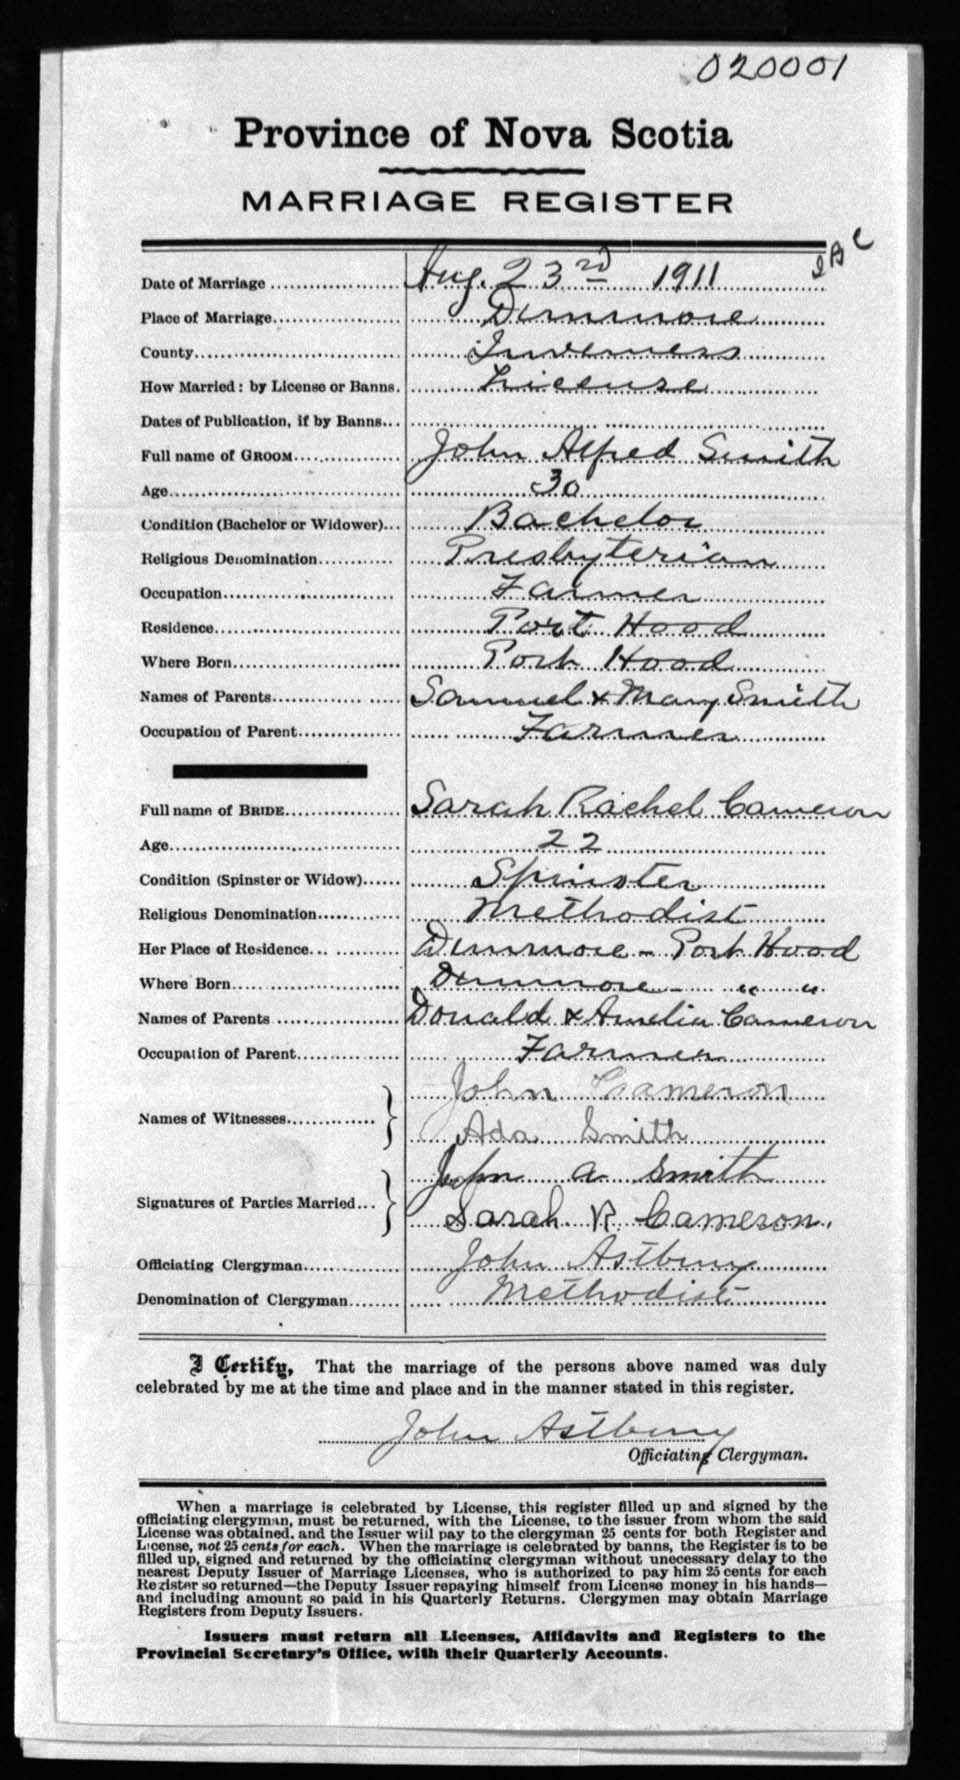 020001
Province of Nova Scotia
MARRIAGE REGISTER
Date of Marriage Aug. 23rd 1911
Place of Marriage Dunmore
County Inverness
How Married: by License or Banns. License
Dates of Publication, if by Banns
Full name of GROOM John Alfred Smith
Age 30
Condition (Bachelor or Widower) Bachelor
Religious Denomination Presbyterian
Occupation Farmer
Residence Port Hood
Where Born Port Hood
Names of Parents Samuel & Mary Smith
Occupation of Parent Farmer
Full name of BRIDE Sarah Rachel Cameron
Age 22
Condition (Spinster or Widow) Spinster
Religious Denomination Methodist
Her Place of Residence Dunmore - Port Hood
Where Born Dunmore - " "
Names of Parents Donald & Amelia Cameron
Occupation of Parent Farmer
John Cameron
Names of Witnesses
Ada Smith
John A Smith
Signatures of Parties Married
Sarah R Cameron.
Officiating Clergyman John Astbury
Denomination of Clergyman Methodist
I Certify, That the marriage of the persons above named was duly
celebrated by me at the time and place and in the manner stated in this register.
John Astbury
Officiating Clergyman.
When a marriage is celebrated by License, this register filled up and signed by the
officiating clergyman, must be returned, with the License, to the issuer from whom the said
License was obtained, and the Issuer will pay to the clergyman 25 cents for both Register and
License, not 25 cents for each. When the marriage is celebrated by banns, the Register is to be
filled up, signed and returned by the officiating clergyman without unecessary delay to the
nearest Deputy Issuer of Marriage Licenses, who is authorized to pay him 25 cents for each
Register so returned—the Deputy Issuer repaying himself from License money in his hands—
and including amount so paid in his Quarterly Returns. Clergymen may obtain Marriage
Registers from Deputy Issuers.
Issuers must return all Licenses, Affidavits and Registers to the
Provincial Secretary's Office, with their Quarterly Accounts.